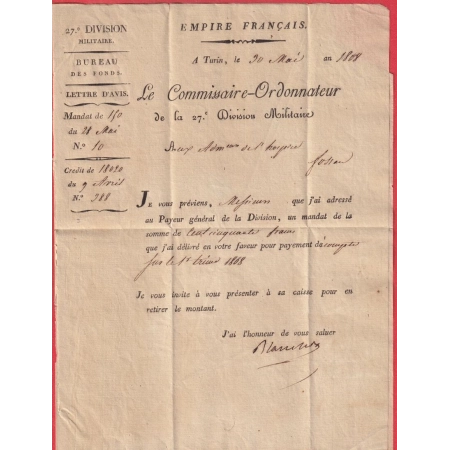 27.e DIVISION
MILITAIRE.
BUREAU
DES FONDS.
LETTRE D'AVIS.
Mandat de 150
du 28 Mai
N.° 10
Credit de 18020
du 9 Avril
N.° 388
EMPIRE FRANÇAIS.
A Turin, le 30 Mai an 1808
Le Commissaire-Ordonnateur
de la 27.e Division Militaire
de l'hospice
fossan
Je vous préviens, Messieurs que j'ai adressé
au Payeur général de la Division, un mandat de la
somme de Cent cinquante francs
que j'ai délivré en votre faveur pour payement d'àcompte
sur le 1er trime 1808
Je vous invite à vous présenter à sa caisse pour en
retirer le montant.
J'ai l'honneur de vous saluer